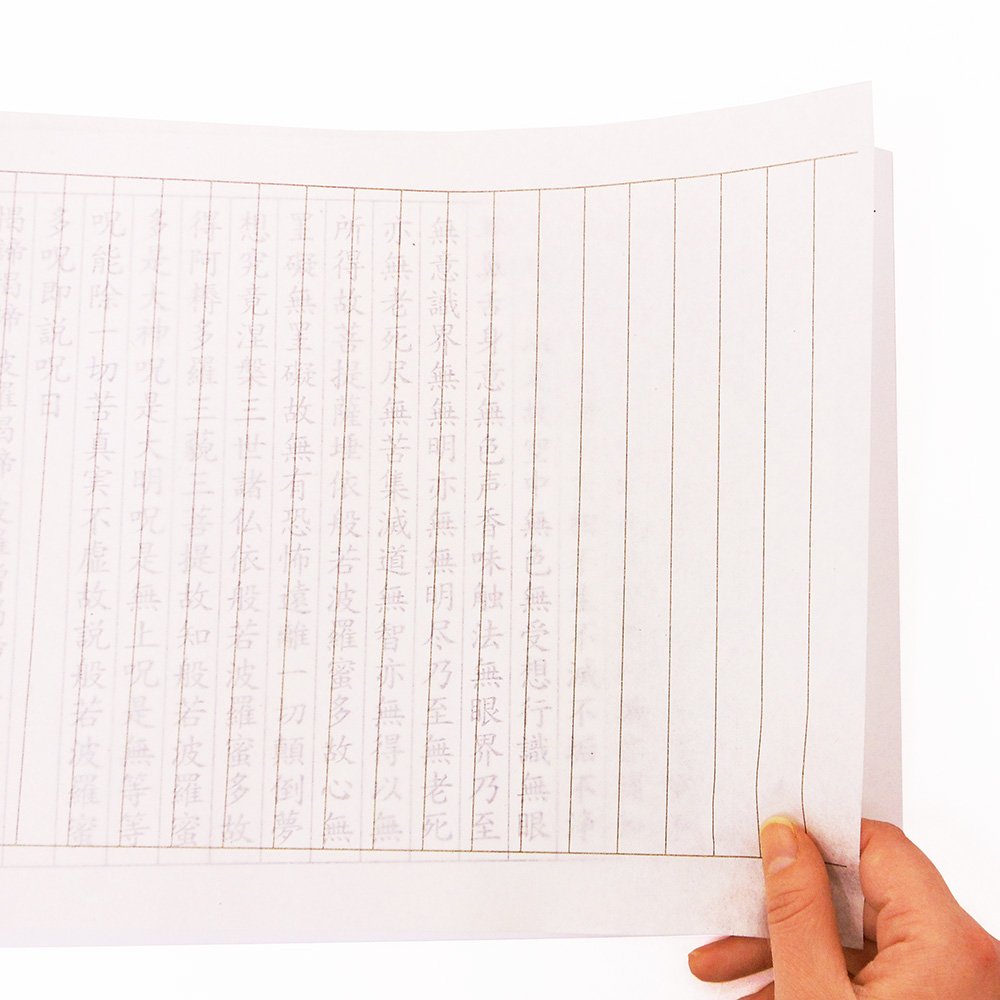 不滅不
空中無色無受想行識無眼
鼻舌身意無色声香味触法無眼界乃至
無意識界無無明亦無無明尽乃至無老死
亦無老死尽無苦集滅道無智亦無得以無
所得故菩提薩埵依般若波羅蜜多故心無
罣礙無罣礙故無有恐怖遠離一切顛倒夢
想究竟涅槃三世諸仏依般若波羅蜜多故
得阿耨多羅三藐三菩提故知般若波羅蜜
多是大神呪是大明呪是無上呪是無等等
呪能除一切苦真実不虚故説般若波羅蜜
多呪即説呪曰
掲諦掲諦 波羅掲諦 波羅僧掲諦